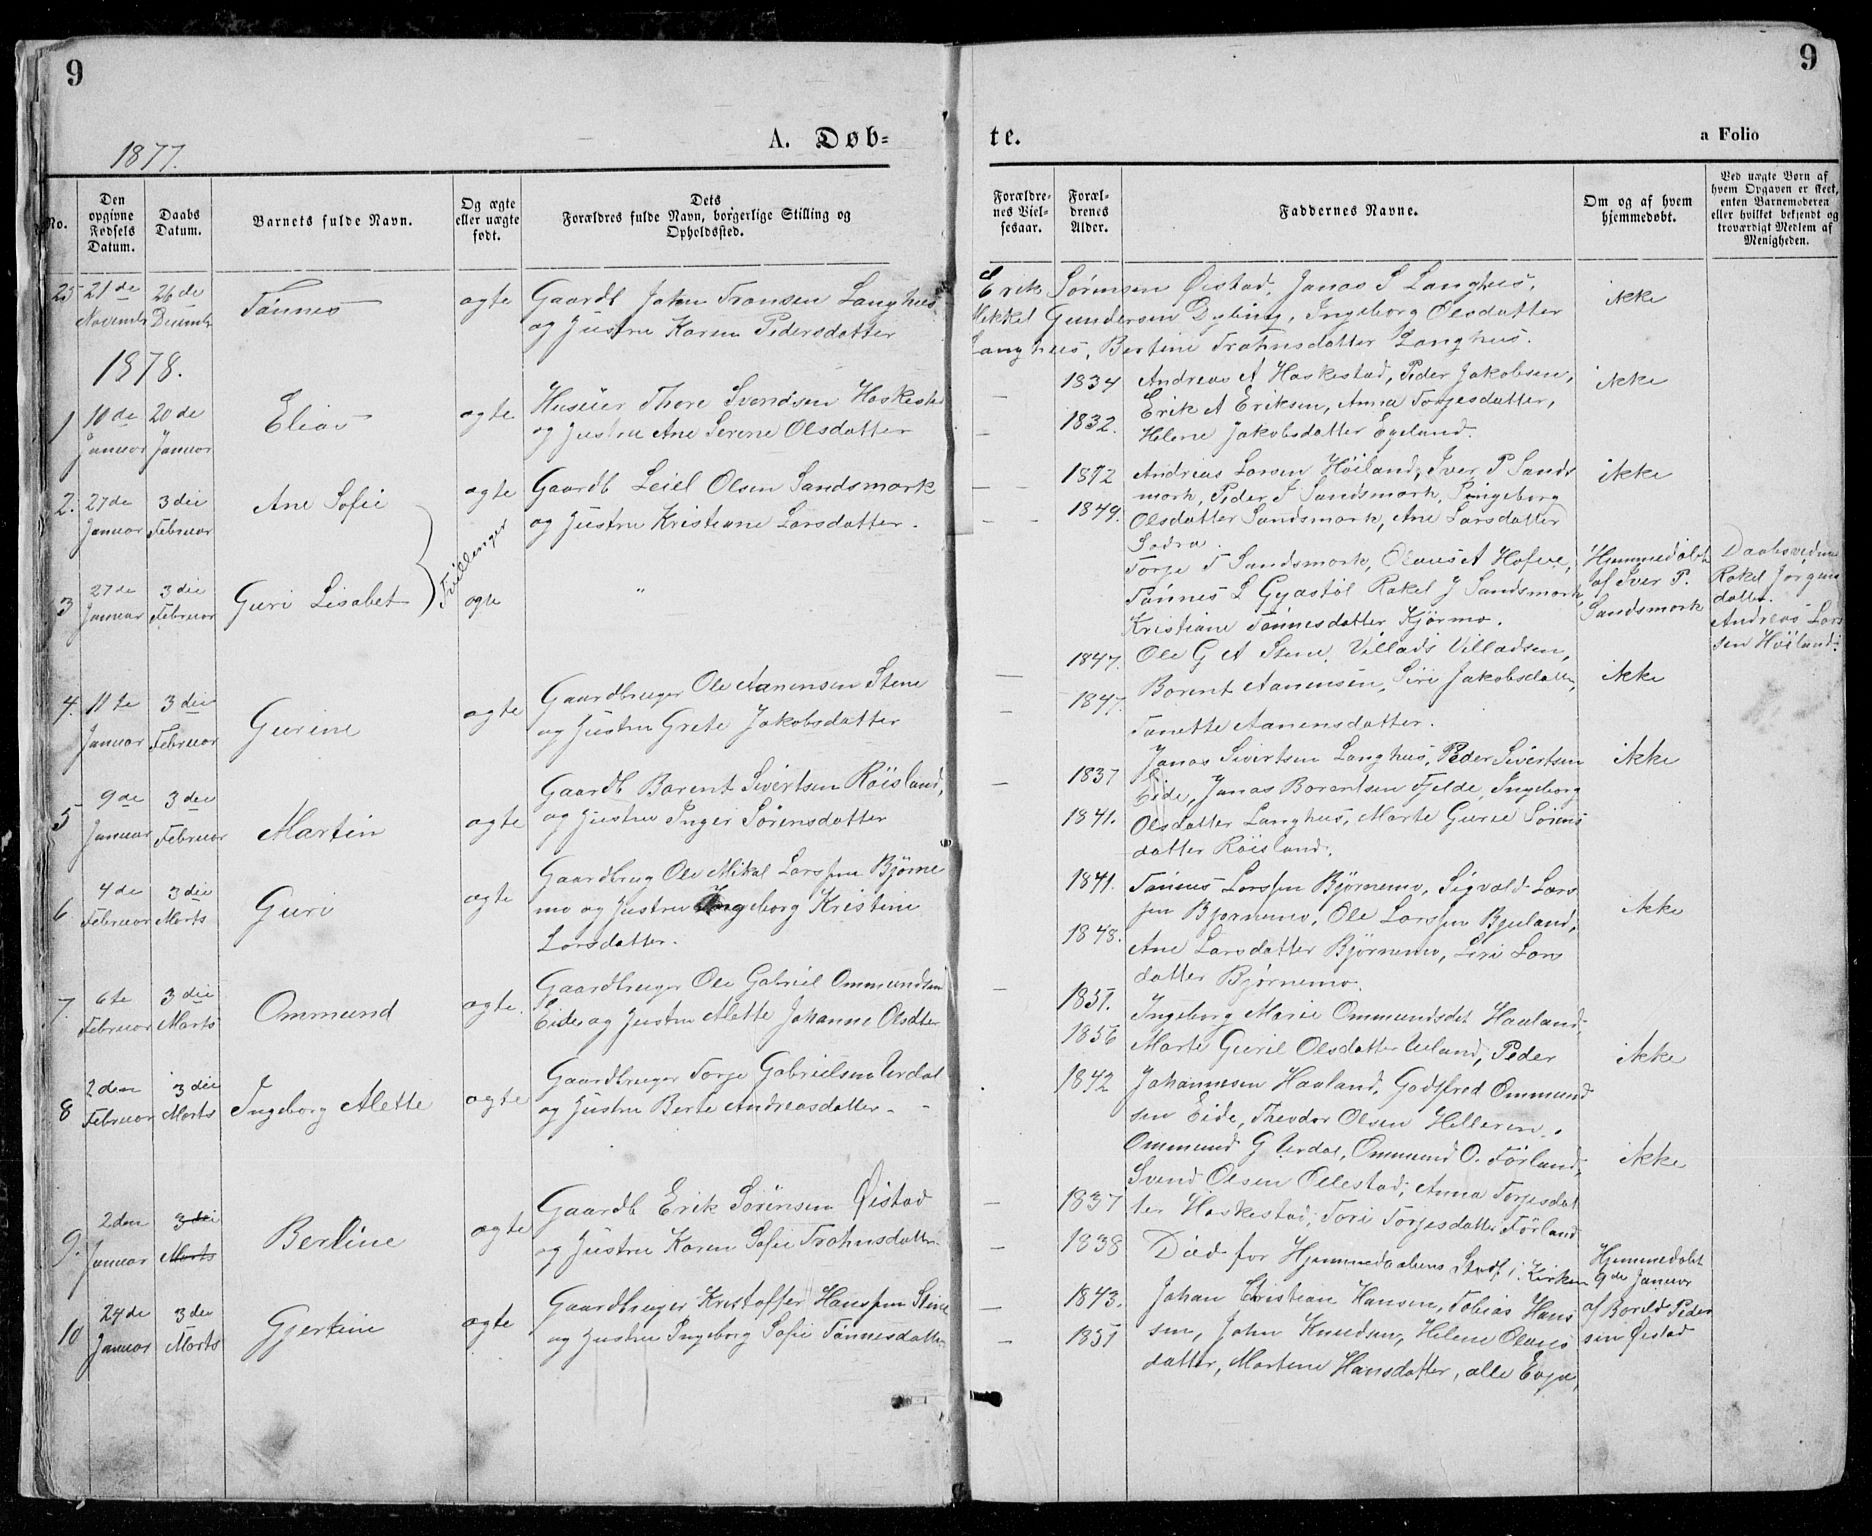 9
1877.
A. Døb-
No.
Den opgivne Fødsels Datum.
Daabs Datum.
Barnets fulde Navn.
Og ægte eller uægte født.
Dets Forældres fulde Navn, borgerlige Stilling og Opholdssted.
25 21de Novembr 26de Decembr Tønnes ægte Gaardb John Tronsen Langhus
og Hustru Karen Pedersdatter
1878.
1 10de Januar 20de Januar Elias ægte Huseier Thore Svendsen Haskestad
og Hustru Ane Serene Olsdatter
2. 27de Januar 3die Februar Ane Sofie ægte Gaardb Leiel Olsen Sandsmark
og Hustru Kristiane Larsdatter.
Tvillinger
3 27de Januar 3die Februar Guri Lisabet ægte "
4. 11te Januar 3die Februar Gurine ægte Gaardbruger Ole Aanensen Stene
og Hustru Grete Jakobsdatter
5 9de Januar 3die Februar Martin ægte Gaardb Barent Sivertsen Røisland,
og Hustru Inger Sørensdatter
6 4de Februar 3die Marts Guri ægte Gaardbrug Ole Mikal Larssen Bjørne
mo og Hustru Ingeborg Kristine
Larsdatter.
7. 6te Februar 3die Marts Ommund ægte. Gaardbruger Ole Gabriel Ommundsen
Eide og Hustru Alette Johanne Olsdtter
8 2den Februar 3die Marts Ingeborg Alette ægte Gaardbruger Torje Gabrielsen Urdal
og Hustru Berte Andreasdatter - -
9. 2den Januar 3die Marts Berline ægte Gaardb Erik Sørensen Øistad
og Hustru Karen Sofie Trohnsdatter
10 24de Januar 3die Marts Gjertine ægte Gaardbruger Kristoffer Hanssen Stene
og Hustru Ingeborg Sofie Tønnesdatter
9
te.
a Folio
Forældrenes Vielsesaar.
Forældrenes Alder.
Faddernes Navne.
Om og af hvem hjemmedøbt.
Ved uægte Børn af hvem Opgaven er skeet, enten Barnemoderen eller hvilket bekjendt og troværdigt Medlem af Menigheden.
Erik Sørensen Øistad, Jonas S Langhus, ikke
Mikkel Gundersen Dybing, Ingeborg Olsdatter
Langhus, Bertine Trohnsdatter Langhus.
1834 Andreas A Haskestad, Peder Jakobsen, ikke
1832. Erik A Eriksen, Anna Torjesdatter,
Helene Jakobsdatter Egeland.
1872 Andreas Larsen Høiland, Iver P Sands ikke
mark, Peder I Sandsmark, Ingeborg
1849. Olsdatter Sandsmark, Ane Larsdatter
Sodra.
Torje T Sandsmark, Olaus A Hofve, Hjemmedøbt Daabsvidne
Tønnes L Gyastøl Rakel J Sandsmark, af Iver P. Rakel Jørgens
Kristiane Tønnesdatter Kjørmo. Sandsmark datter.
Andreas Lars
sen Høiland.
1847. Ole G A Stene, Villads Villadsen,
1847. Borent Aanensen, Siri Jakobsdatter, ikke
Tanette Aanensdatter.
Jonas Sivertsen Langhus, Peder Sivertsen ikke
1837 Eide, Jonas Borentsen Fjelde, Ingeborg
1841. Olsdatter Langhus, Marte Gurie Sørens
datter Røisland.
1841. Tønnes Larssen Bjørnemo, Sigvald Lars
sen Bjørnemo, Ole Larssen Bjuland, ikke
1848. Ane Larsdatter Bjørnemo, Siri Lars
datter Bjørnemo.
1851. Ingeborg Marie Ommundsdat Haaland,
1856 Marte Guril Olsdatter Ueland, Peder ikke
1842 Johannesen Haaland, Godtfred Ommund
sen Eide, Theodor Olsen Helleren.
Ommund G Urdal, Ommund O. Førland, ikke
Svend Olsen Ollestad, Anna Torjesdat
1837 ter Haskestad, Tori Torjesdatter Førland
1838 Død før Hjemmedaabens Stadf. i Kirken Hjemmedøbt
9de Januar
1843. Johan Christian Hansen, Tobias Hans af Borild Peder
1851 sen, John Knudsen, Helene Olaves sen Øistad
datter, Martene Hansdatter, alle Evje,